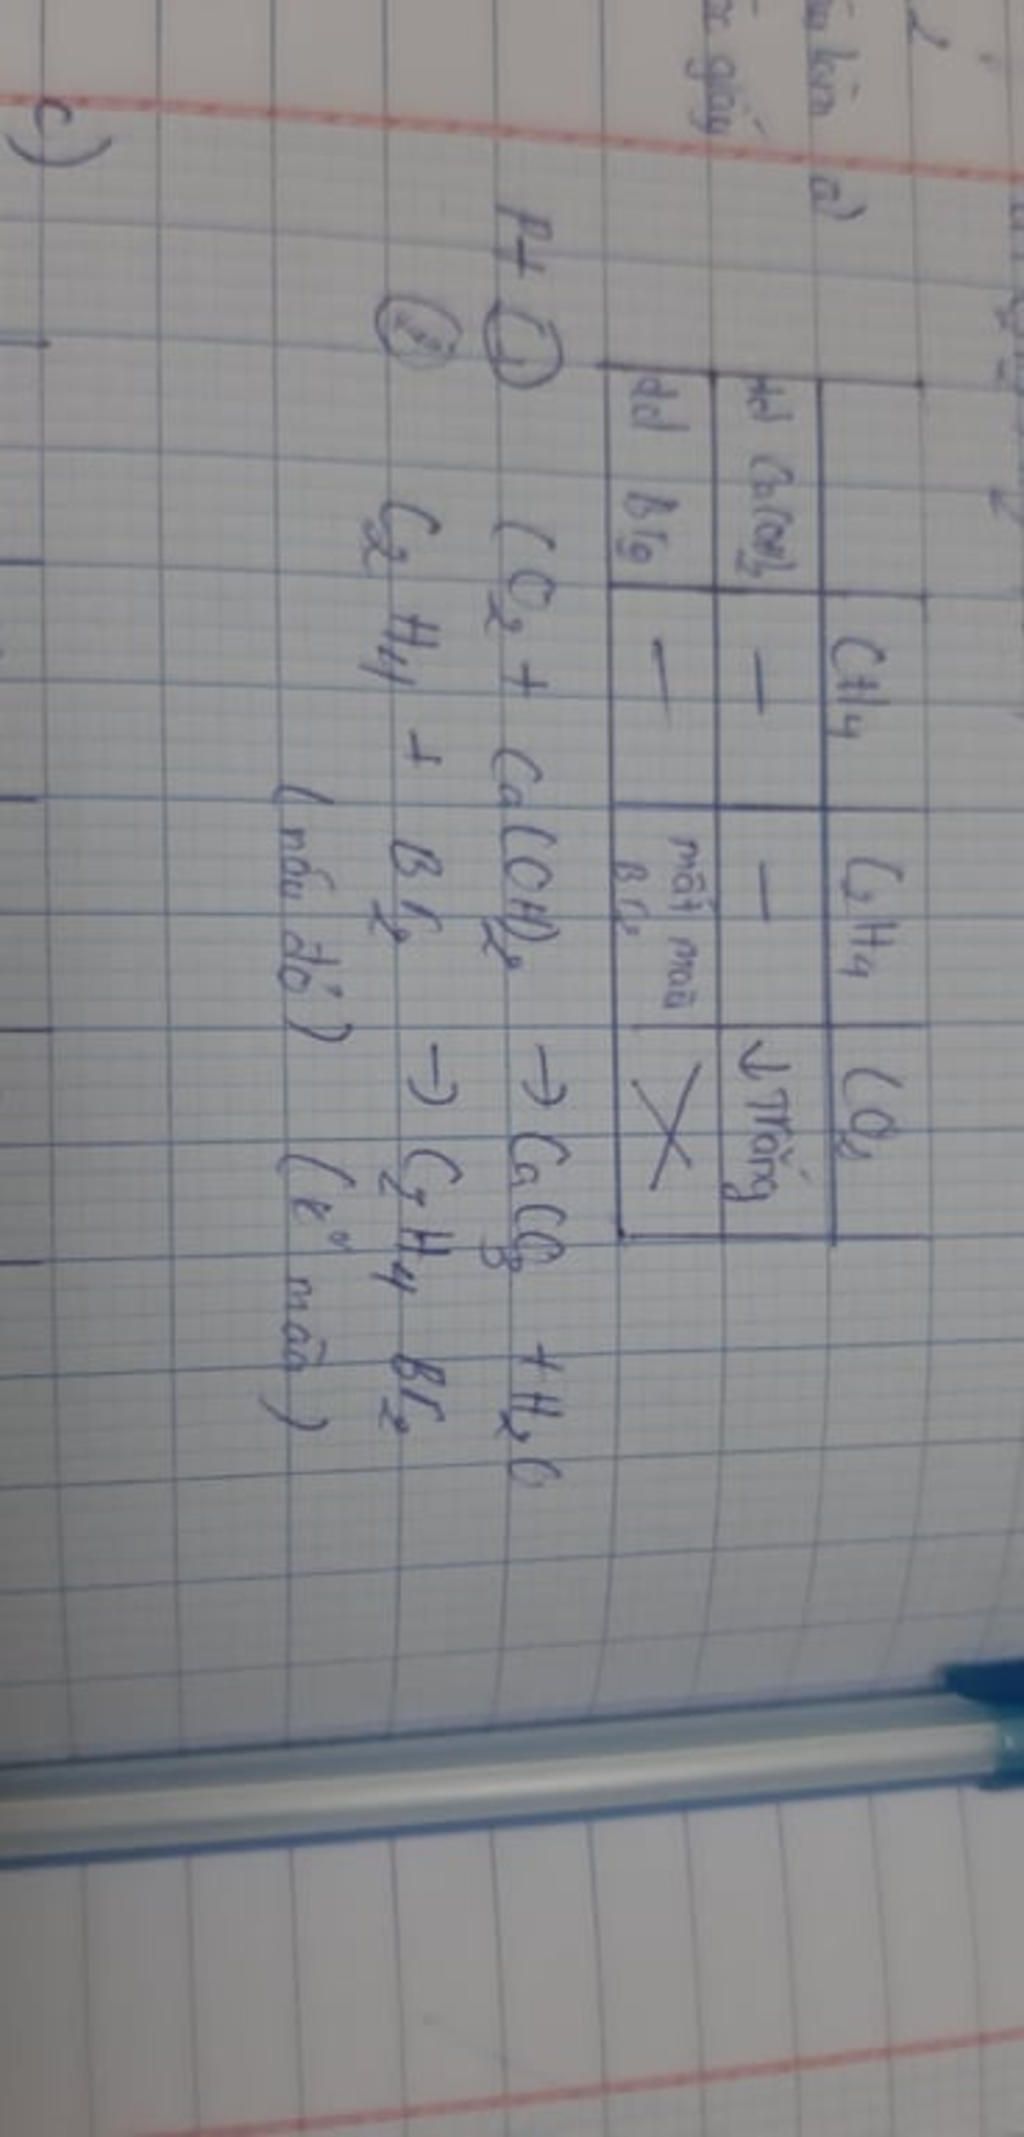 a)
CH4 C2H4 CO2
dd Ca(OH)2 — — ↓ Trắng
dd Br2 — mất màu Br2 X
Pt ① CO2 + Ca(OH)2 → CaCO3 + H2O
C2H4 + Br2 → C2H4Br2
(nâu đỏ) (ko màu)
c)